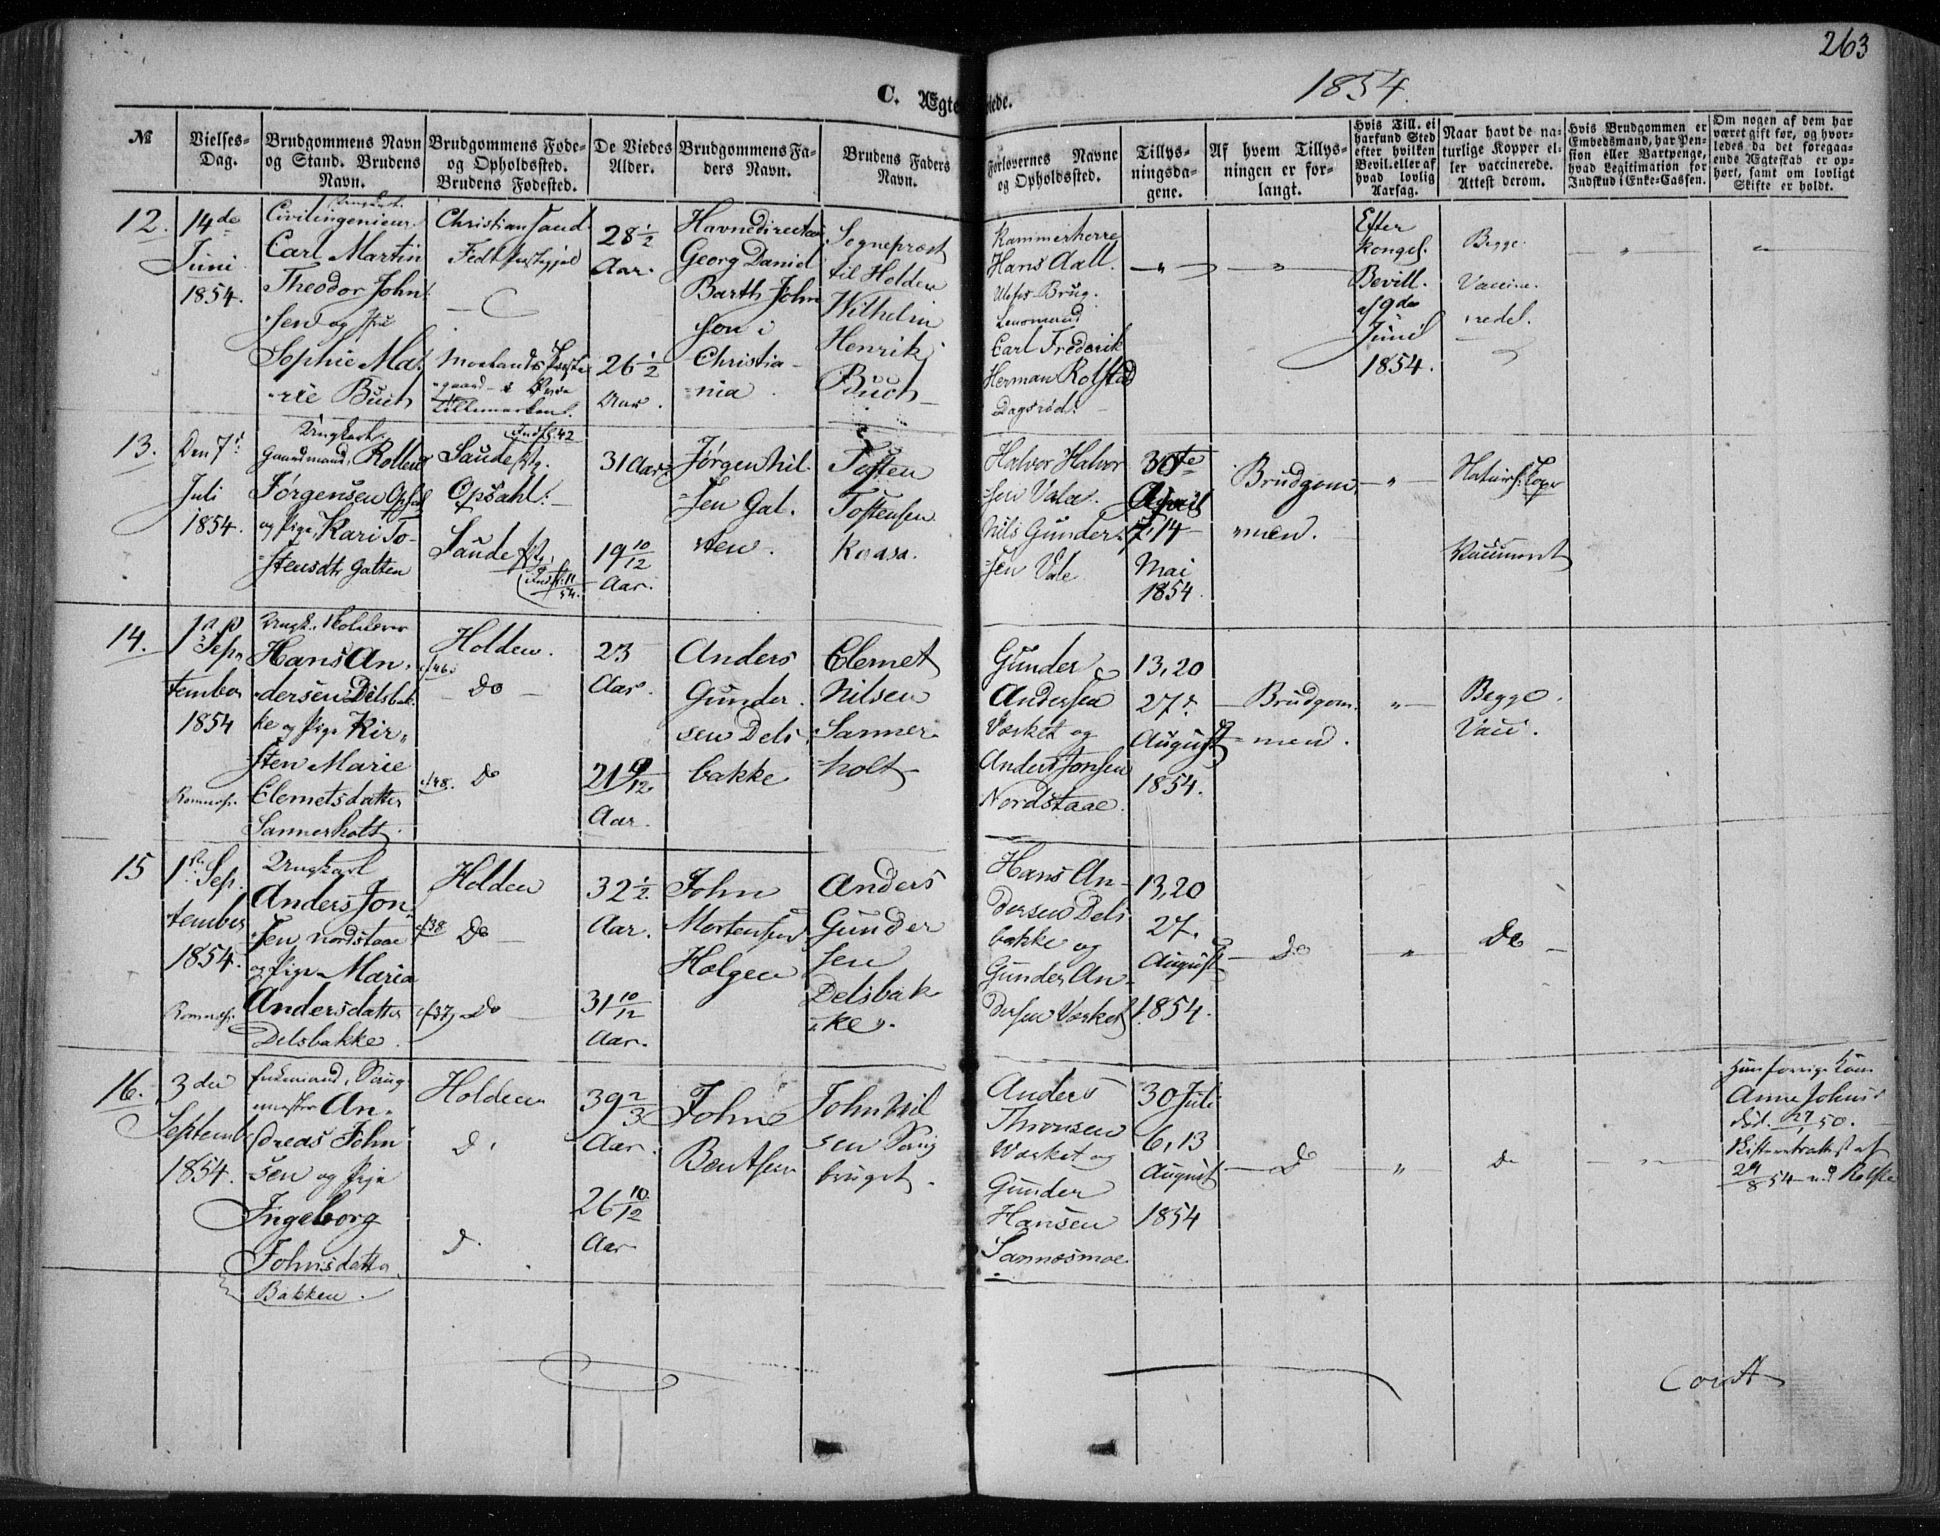 263
C. Ægteviede.
1854.
№
Vielses-
Dag.
Brudgommens Navn
og Stand. Brudens
Navn.
Brudgommens Føde-
og Opholdssted.
Brudens Fødested.
De Viedes
Alder.
Brudgommens Fa-
ders Navn.
Brudens Faders
Navn.
Forlovernes Navne
og Opholdssted.
Tillys-
ningsda-
gene.
Af hvem Tillys-
ningen er for-
langt.
Hvis Till. ei
har fund Sted
efter hvilken
Bevil. eller af
hvad lovlig
Aarsag.
Naar havt de na-
turlige Kopper el-
ler vaccinerede.
Attest derom.
Hvis Brudgommen er
Embedsmand, har Pen-
sion eller Vartpenge,
hvad Legitimation for
Indskud i Enke-Cassen.
Om nogen af dem har
været gift før, og hvor-
ledes da det foregaa-
ende Ægteskab er op-
hørt, samt om lovligt
Skifte er holdt.
12.
14de
Juni
1854.
Ungkarl
Civilingenieur
Carl Martin
Theodor John
sen og
Sophie Ma
rie Buch
Christiansand
28½
Aar.
26½
Aar.
Havnedirecteur
Georg Daniel
Barth John
son i
Christia-
nia
Sognepræst
til Holden
Wilhelm
Henrik
Buch
Kammerherre
Hans Aall
Ulefos Brug.
Lensmand
Carl Frederik
Herman Rolstad
Dagsrød.
Efter
Kongel.
Bevill.
af 9de
Juni
1854.
Begge
Vaccine-
redel.
13.
Den 7d
Juli
1854.
Ungkarl
Gaardmand, Rollend
Jørgensen Opsal
og Pige Kari To-
stensdtr Gatten
Saude Pg.
Opsahl.
Saude Pg.
31 Aar
19 10/12
Aar.
Jørgen Nil-
sen Gal.
Tosten
Tostensen
Kaasa.
Halvor Halvor
sen Vala.
Nils Gunder
sen Vale
30te
April
7, 14
Mai
1854.
Brudgom
men.
Naturl. Koper
Vaccineret
14.
1ste
Sep
tember
1854
Hans An-
dersen Delsbak-
ke og Pige Kir-
sten Marie
Clemetsdatter
Sannerholt.
Holden.
Do
Do
23
Aar.
21 9/12
Aar.
Anders
Gunder-
sen Dels
bakke
Clemet
Nilsen
Sanner-
holt
Gunder
Andersen
Værket og
Anders Jonsen
Nordstaae.
13, 20
27d
August
1854.
Brudgom-
men.
Begge
Vacci.
Romnæs.
15
1ste Sep-
tember
1854.
Romnæs.
Ungkarl
Anders Jon-
sen Nordstaae
og Pige Maria
Andersdatter
Delsbakke.
Holden
f38 Do
f37 Do
32½
Aar.
31 10/12
Aar.
John
Mortensen
Holgen
Anders
Gunder
sen
Delsbak
ke.
Hans An-
dersen Dels
bakke og
Gunder An-
dersen Værket
13, 20
27.
August
1854.
Do
Do
16.
3die
Septemb
1854.
Enkemand, Saug
mester An-
dreas John
sen og Pige
Ingeborg
Johnsdatter
Bakken.
Holden
Do
Do
39 2/3
Aar.
26 10/12
Aar
John
Bentsen
John Nil
sen Saug
bruget.
Anders
Thronsen
Værket og
Gunder
Hansen
Sannesmoe
30 Juli
6, 13
August
1854
Do
Do
Hans forrige Kone
Anne Johns
død. 50.
Skifteretsattest af
24/8 54